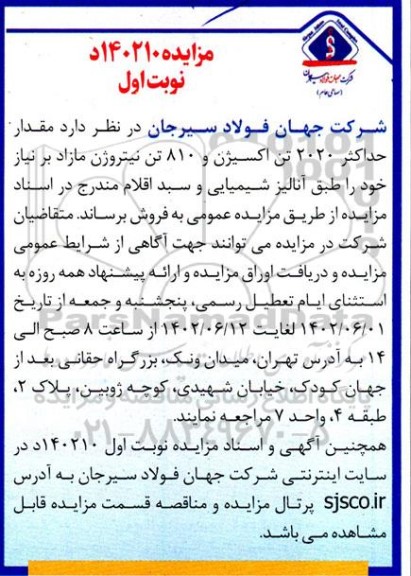 مزایده ۱۴۰۲۱۰د
نوبت اول
شرکت جهان فولاد سیرجان
(سهامی عام)
شرکت جهان فولاد سیرجان در نظر دارد مقدار
حداکثر ۲۰۲۰ تن اکسیژن و ۸۱۰ تن نیتروژن مازاد بر نیاز
خود را طبق آنالیز شیمیایی و سبد اقلام مندرج در اسناد
مزایده از طریق مزایده عمومی به فروش برساند. متقاضیان
شرکت در مزایده می توانند جهت آگاهی از شرایط عمومی
مزایده و دریافت اوراق مزایده و ارائه پیشنهاد همه روزه به
استثنای ایام تعطیل رسمی، پنجشنبه و جمعه از تاریخ
۱۴۰۲/۰۶/۰۱ لغایت ۱۴۰۲/۰۶/۱۲ از ساعت ۸ صبح الی
۱۴ به آدرس تهران، میدان ونک، بزرگراه حقانی بعد از
جهان کودک، خیابان شهیدی، کوچه ژوبین، پلاک ۲،
طبقه ۴، واحد ۷ مراجعه نمایند.
همچنین آگهی و اسناد مزایده نوبت اول ۱۴۰۲۱۰د در
سایت اینترنتی شرکت جهان فولاد سیرجان به آدرس
sjsco.ir پرتال مزایده و مناقصه قسمت مزایده قابل
مشاهده می باشد.
ParsNamadData
۰۲۱-۸۸۳۴۹۶۷۰-۵